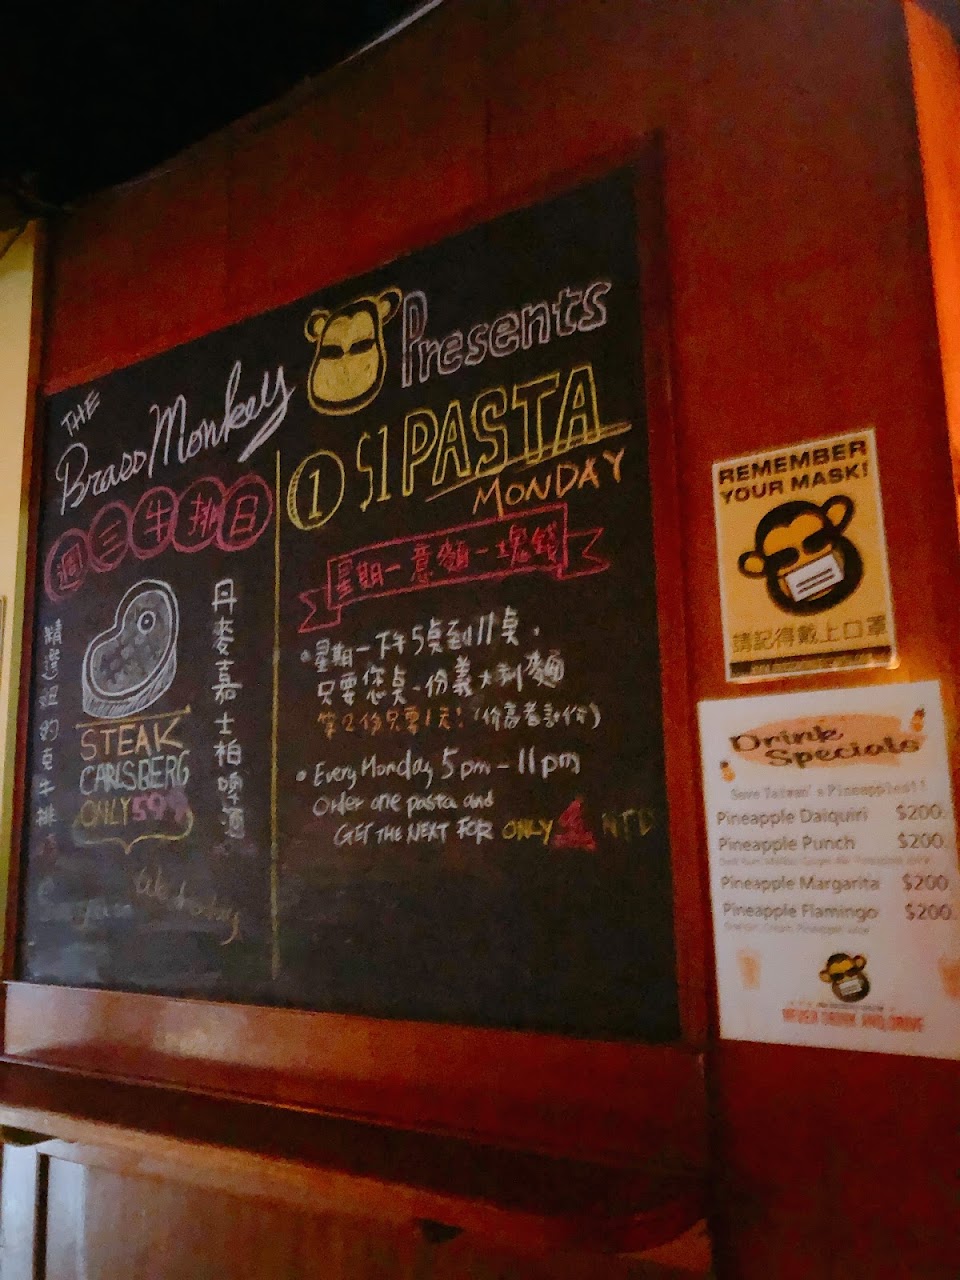 THE
Brass Monkey
Presents
週三牛排日
精選紐約克牛排
丹麥嘉士柏啤酒
STEAK
CARLSBERG
ONLY 599
Wednesday
① $1 PASTA
MONDAY
星期一 意麵一塊錢
星期一下午5點到11點，
只要您點一份義大利麵
第2份只要1元!
Every Monday 5pm - 11pm
Order one pasta and
GET THE NEXT FOR ONLY 1 NTD
REMEMBER
YOUR MASK!
請記得戴上口罩
Drink
Specials
Save Taiwan's Pineapples!!
Pineapple Daiquiri $200.
Pineapple Punch $200.
Pineapple Margarita $200.
Pineapple Flamingo $200.
NEVER DRINK AND DRIVE